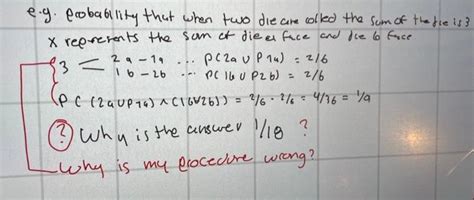 e.g. probability that when two die are rolled the sum of the die is 3
X represents the sum of die a face and die b face
3 = 2a - 1a ... P(2a ∪ P1a) = 2/6
1b - 2b ... P(1b ∪ P2b) = 2/6
P((2a∪P1a) ∧ (1b∪2b)) = 2/6 · 2/6 = 4/36 = 1/9
? Why is the answer 1/18 ?
Why is my procedure wrong?